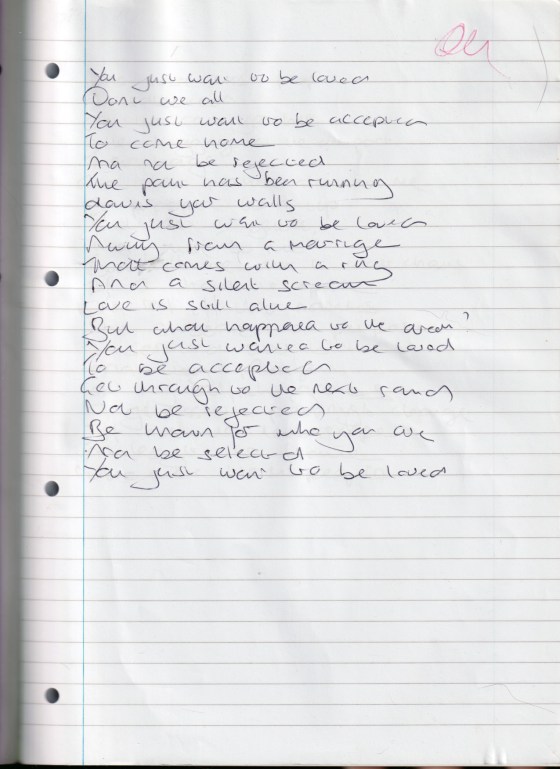 You just want to be loved
Dont we all
You just want to be accepted
To come home
And not be rejected
The pain has been running
down your walls
You just want to be loved
Away from a marrige
That comes with a ring
And a silent scream
Love is still alive
But what happened to the dream?
You just wanted to be loved
To be accepted
Get through to the next round
Not be rejected
Be known for who you are
And be selected
You just want to be loved